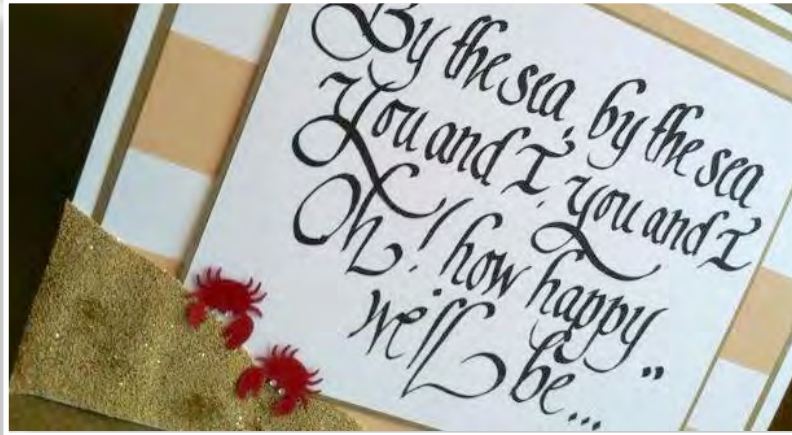 By the sea, by the sea
You and I, you and I
Oh! how happy
we'll be...